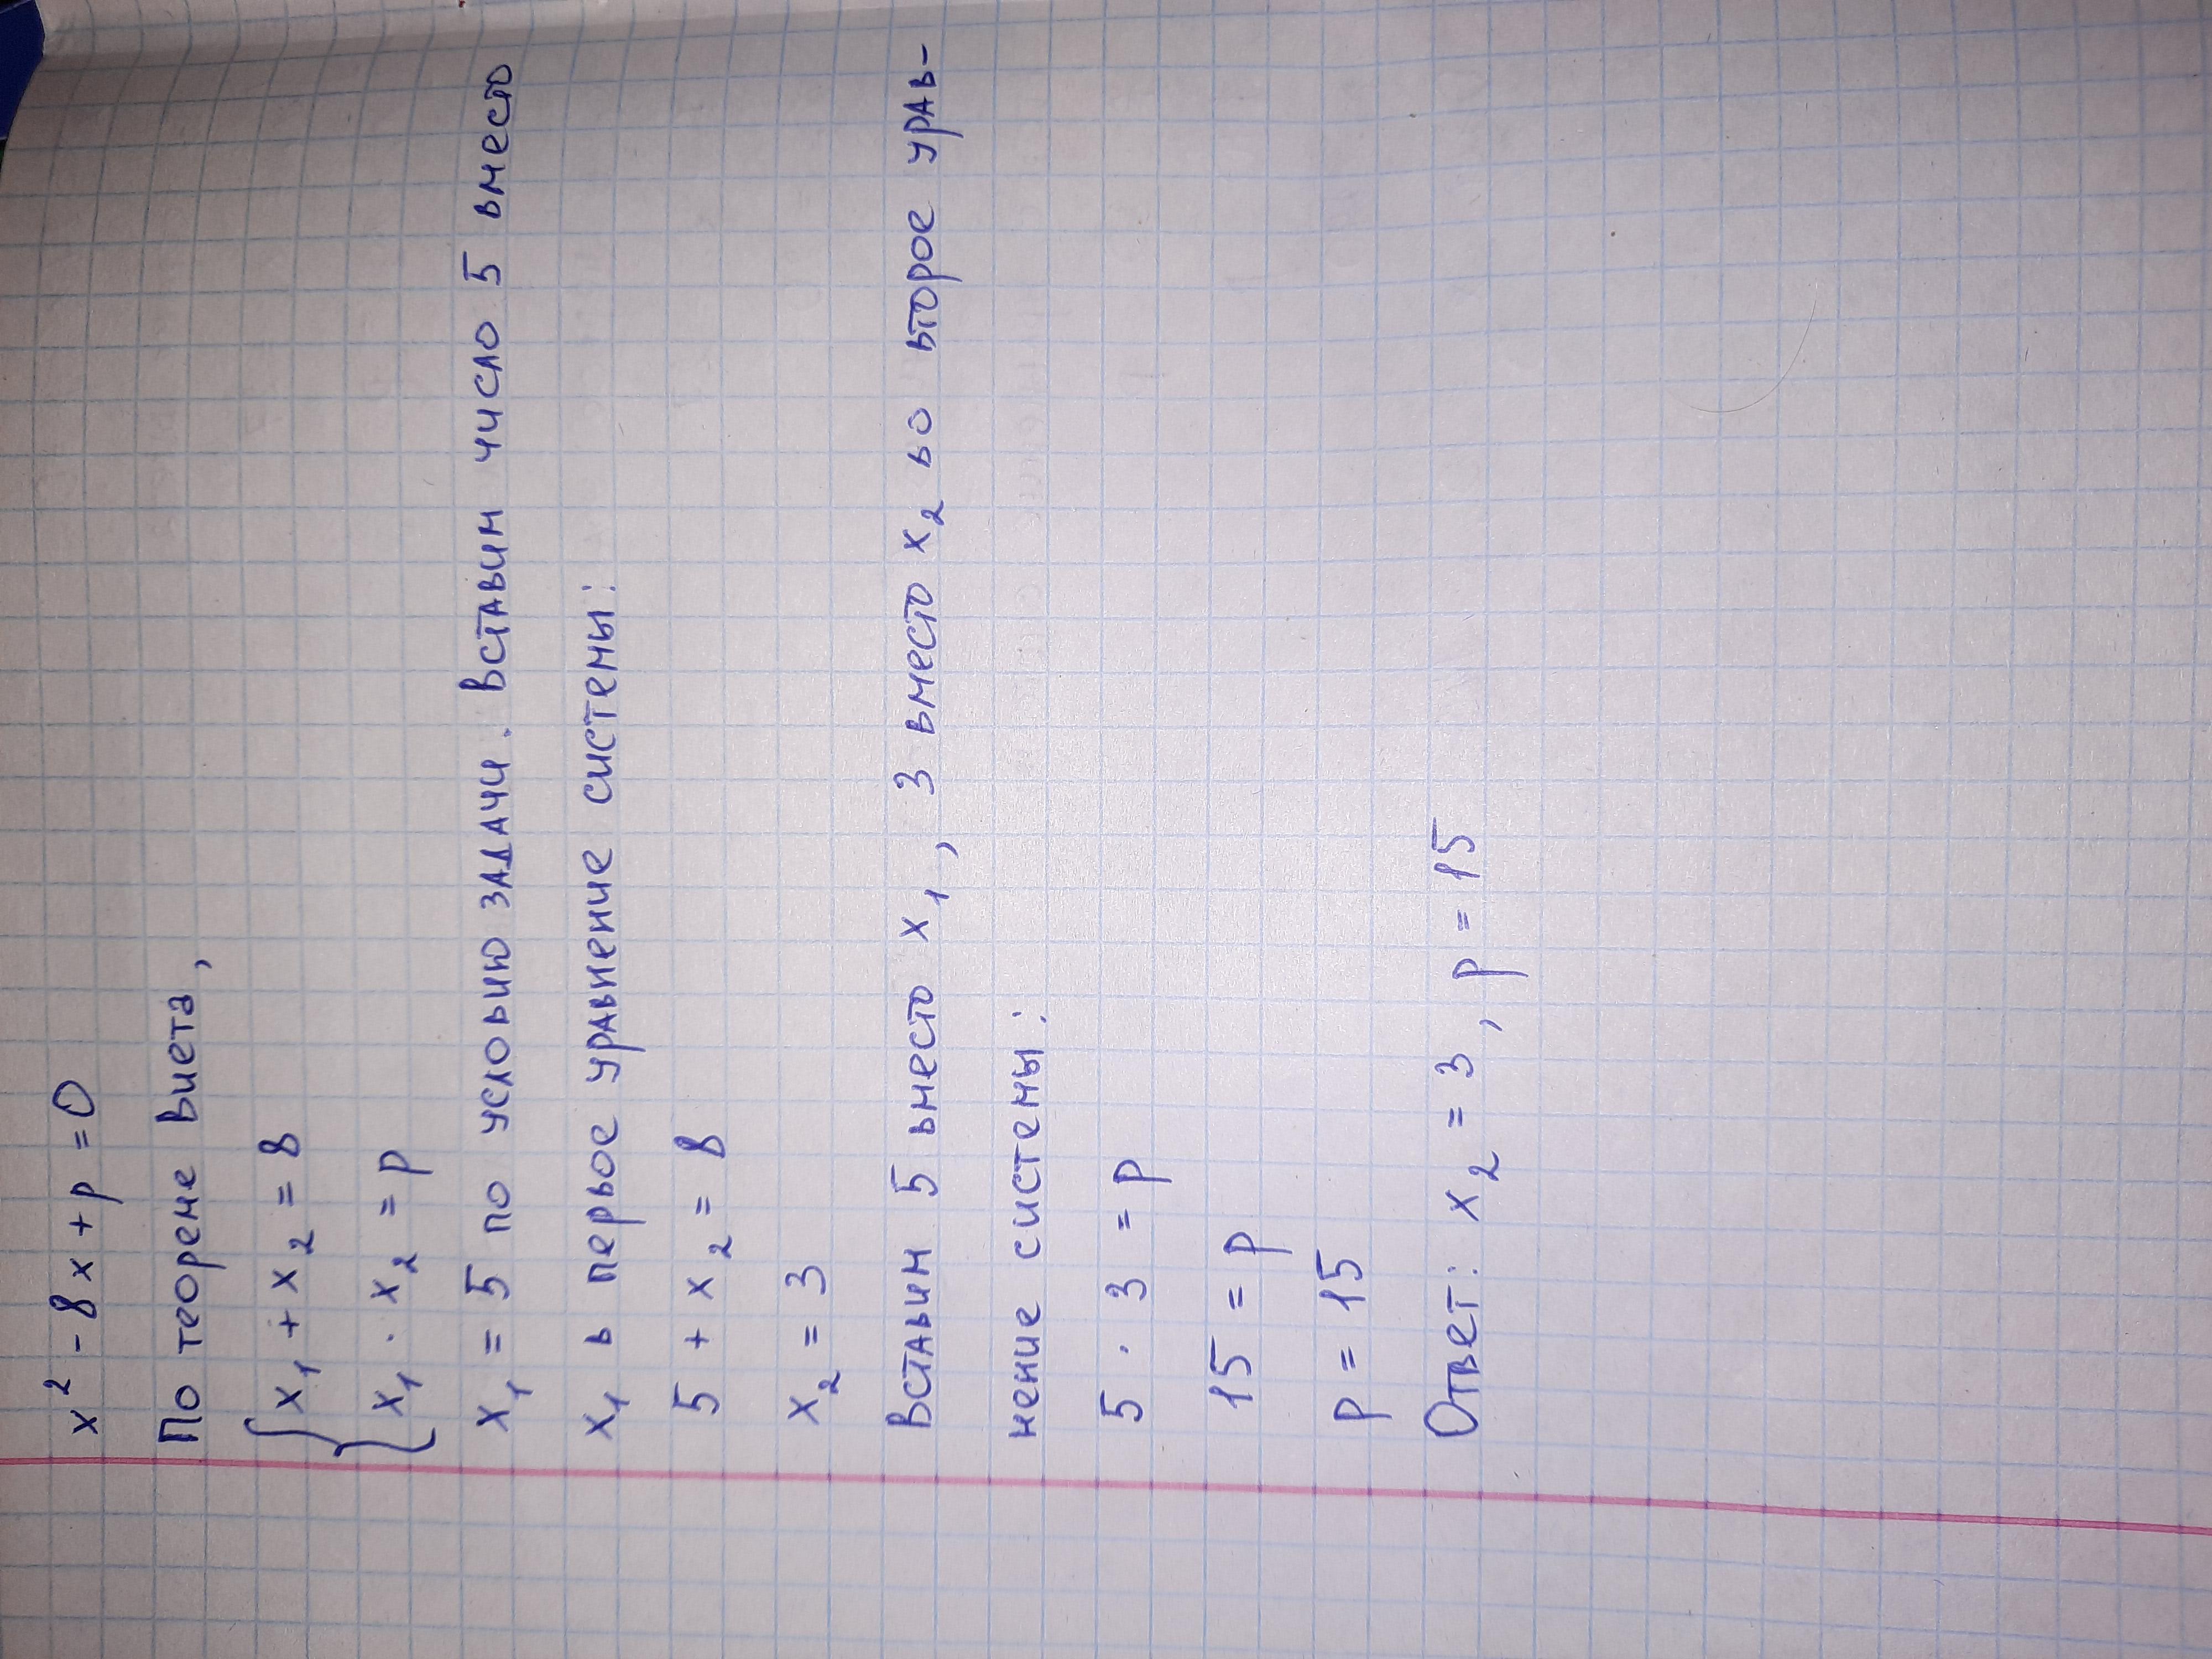 x² - 8x + p = 0
По теореме Виета,
x₁ + x₂ = 8
x₁ · x₂ = p
x₁ = 5 по условию задачи. Вставим число 5 вместо
x₁ в первое уравнение системы:
5 + x₂ = 8
x₂ = 3
Вставим 5 вместо x₁, 3 вместо x₂ во второе урав-
нение системы:
5 · 3 = p
15 = p
p = 15
Ответ: x₂ = 3, p = 15